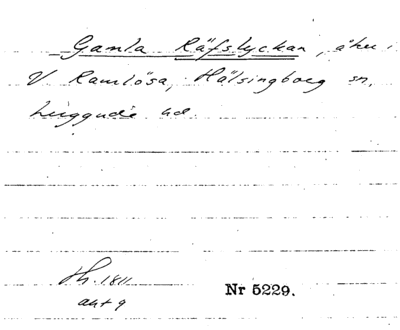 Gamla Räfslyckan, åker i
V Ramlösa, Hälsingborg sn,
Luggude hd.
Sk. 1811
akt 9
Nr 5229.